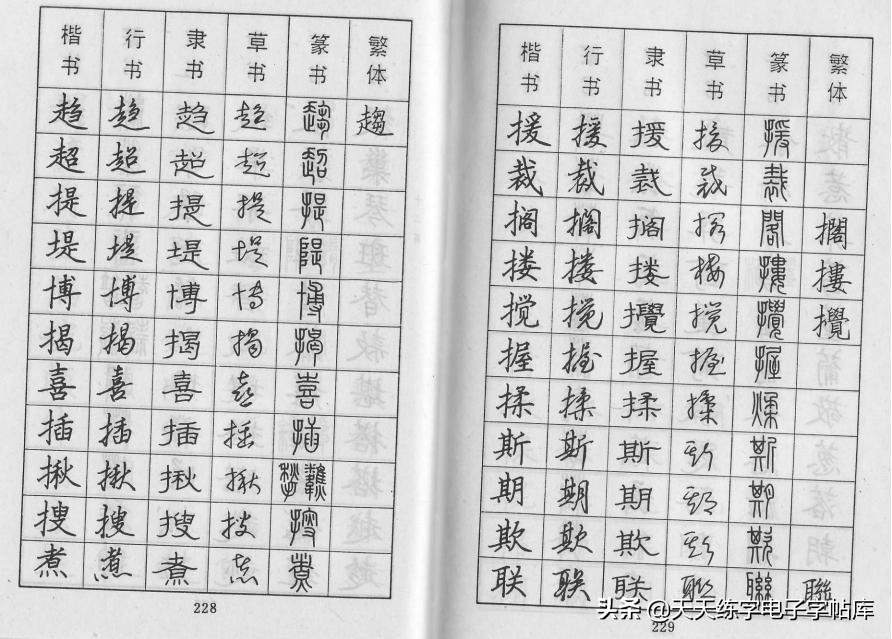 楷书 行书 隶书 草书 篆书 繁体
趋 趋 趋 趋 趋 趨
超 超 超 超 超
提 提 提 提 提
堤 堤 堤 堤 堤
博 博 博 博 博
揭 揭 揭 揭 揭
喜 喜 喜 喜 喜
插 插 插 插 插
揪 揪 揪 揪 揪
搜 搜 搜 搜 搜
煮 煮 煮 煮 煮
228
楷书 行书 隶书 草书 篆书 繁体
援 援 援 援 援
裁 裁 裁 裁 裁
搁 搁 搁 搁 擱 擱
搂 搂 搂 搂 摟 摟
搅 搅 攪 搅 攪 攪
握 握 握 握 握
揉 揉 揉 揉 揉
斯 斯 斯 斯 斯
期 期 期 期 期
欺 欺 欺 欺 欺
联 联 联 联 聯 聯
229
头条 @天天练字电子字帖库